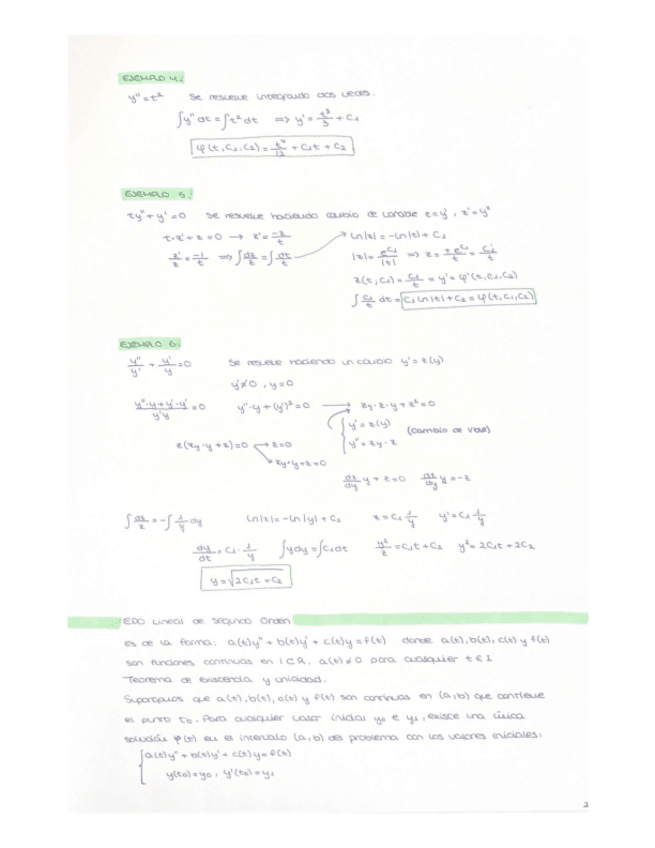 EJEMPLO 4:
y'' = t² Se resuelve integrando dos veces.
∫y'' dt = ∫t² dt ⟹ y' = t³/3 + C₁
φ(t, C₁, C₂) = t⁴/12 + C₁t + C₂
EJEMPLO 5:
ty'' + y' = 0 Se resuelve haciendo cambio de variable z = y', z' = y''
t·z' + z = 0 → z' = -z/t
ln|z| = -ln|t| + C₁
z'/z = -1/t ⟹ ∫dz/z = ∫dt/t
|z| = e^C₁/|t| ⟹ z = ±e^C₁/t = C₁'/t
z(t, C₁) = C₁/t = y' = φ'(t, C₁, C₂)
∫C₁/t dt = C₁ ln|t| + C₂ = φ(t, C₁, C₂)
EJEMPLO 6:
y''/y' + y'/y = 0 Se resuelve haciendo un cambio y' = z(y)
y' ≠ 0, y = 0
y''·y + y'·y'/y'y = 0 y''·y + (y')² = 0 → zy·z·y + z² = 0
y' = z(y)
y'' = zy·z
(Cambio de Vble)
z(zy·y + z) = 0 → z = 0
zy·y + z = 0
dz/dy y + z = 0 dz/dy y = -z
∫dz/z = -∫1/y dy ln|z| = -ln|y| + C₁ z = C₁ 1/y y' = C₁ 1/y
dy/dt = C₁·1/y ∫ydy = ∫C₁dt y²/2 = C₁t + C₂ y² = 2C₁t + 2C₂
y = √2C₁t + C₂
EDO Lineal de Segundo Orden
es de la forma: a(t)y'' + b(t)y' + c(t)y = f(t) donde a(t), b(t), c(t) y f(t)
son funciones continuas en I C R. a(t) ≠ 0 para cualquier t ∈ I
Teorema de existencia y unicidad.
Supongamos que a(t), b(t), c(t) y f(t) son continuas en (a, b) que contiene
el punto t₀. Para cualquier valor inicial y₀ e y₁, existe una única
solución φ(t) en el intervalo (a, b) del problema con los valores iniciales:
a(t)y'' + b(t)y' + c(t)y = f(t)
y(t₀) = y₀, y'(t₀) = y₁
2